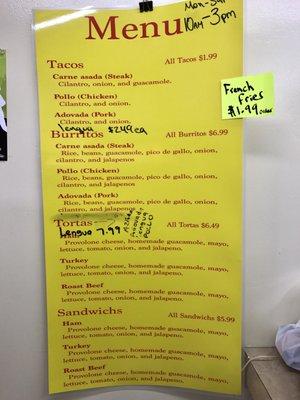 Menu
Mon-Sat
10am-3pm
Tacos
All Tacos $1.99
Carne asada (Steak)
Cilantro, onion, and guacamole.
Pollo (Chicken)
Cilantro, and onion.
Adovada (Pork)
Cilantro, and onion.
Lengua $2.49 ea
French
Fries
$1.99
Burritos
All Burritos $6.99
Carne asada (Steak)
Rice, beans, guacamole, pico de gallo, onion,
cilantro, and jalapenos
Pollo (Chicken)
Rice, beans, guacamole, pico de gallo, onion,
cilantro, and jalapenos
Adovada (Pork)
Rice, beans, guacamole, pico de gallo, onion,
cilantro, and jalapenos
Tortas
All Tortas $6.49
7.99
Asada
Adovada
Pollo
Provolone cheese, homemade guacamole, mayo,
lettuce, tomato, onion, and jalapeno.
Turkey
Provolone cheese, homemade guacamole, mayo,
lettuce, tomato, onion, and jalapeno.
Roast Beef
Provolone cheese, homemade guacamole, mayo,
lettuce, tomato, onion, and jalapeno.
Sandwichs
All Sandwichs $5.99
Ham
Provolone cheese, homemade guacamole, mayo,
lettuce, tomato, onion, and jalapeno.
Turkey
Provolone cheese, homemade guacamole, mayo,
lettuce, tomato, onion, and jalapeno.
Roast Beef
Provolone cheese, homemade guacamole, mayo,
lettuce, tomato, onion, and jalapeno.